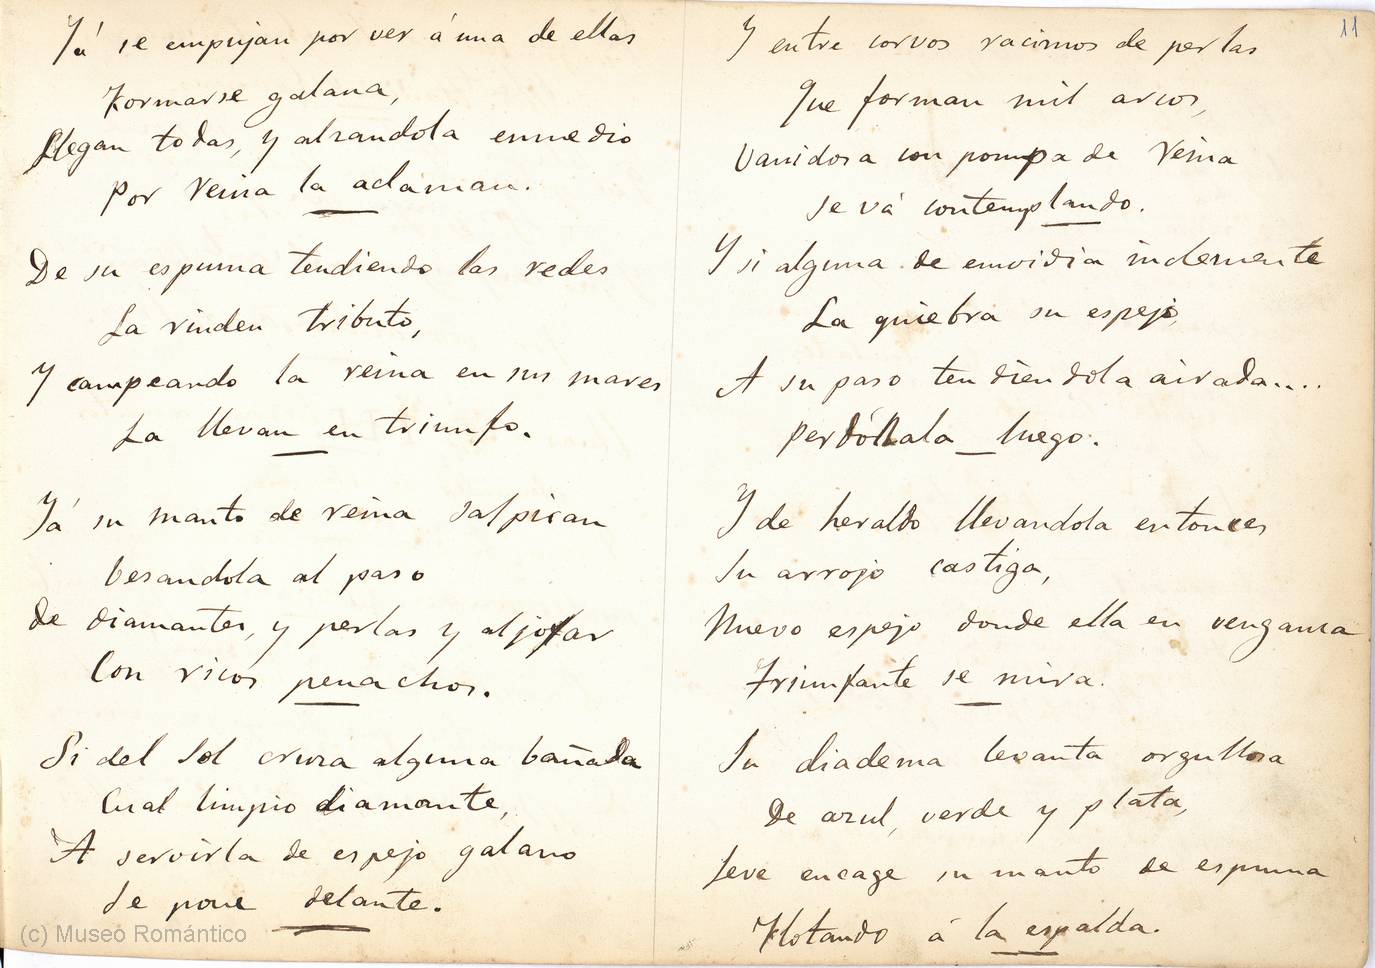 Yá se empujan por ver á una de ellas
Formarse galana,
Llegan todas, y alzandola enmedio
Por reina la aclaman.
De su espuma tendiendo las redes
La rinden tributo,
Y campeando la reina en sus mares
La llevan en triunfo.
Yá su manto de reina salpican
besandola al paso
de diamantes, y perlas y aljofar
Con ricos penachos.
Si del Sol cruza alguna bañada
Cual limpio diamante,
A servirla de espejo galano
Se pone delante.
(c) Museo Romántico
11
Y entre corvos racimos de perlas
Que forman mil arcos,
Vanidosa con pompa de reina
se vá contemplando.
Y si alguna de envidia inclemente
La quiebra su espejo,
A su paso tendiendola airada....
perdónala luego.
Y de heraldo llevandola entonces
Su arrojo castiga,
Nuevo espejo donde ella en venganza
Triunfante se mira.
Su diadema levanta orgullosa
De azul, verde y plata,
Leve encage su manto de espuma
Flotando á la espalda.